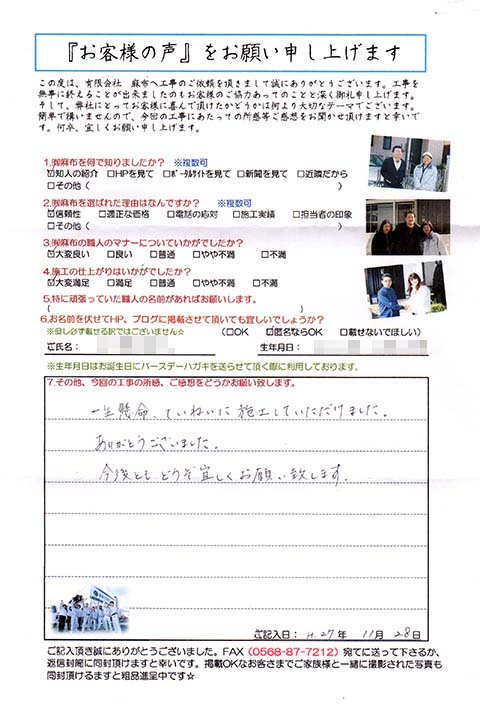 『お客様の声』をお願い申し上げます
この度は、有限会社　麻布へ工事のご依頼を頂きまして誠にありがとうございます。工事を
無事に終えることが出来ましたのもお客様のご協力あってのことと深く御礼申し上げます。
そして、弊社にとってお客様に喜んで頂けたかどうかは何より大切なテーマでございます。
簡単で構いませんので、今回の工事にあたっての所感等ご感想をお聞かせ頂けますと幸いで
す。何卒、宜しくお願い申し上げます。
1.㈲麻布を何で知りましたか？　※複数可
☑知人の紹介　□HPを見て　□ポータルサイトを見て　□新聞を見て　□近隣だから
□その他（　　　　　　　　　　　　　　　　　　　）
2.㈲麻布を選ばれた理由はなんですか？　※複数可
☑信頼性　□適正な価格　□電話の応対　□施工実績　□担当者の印象
□その他（　　　　　　　　　　　　　　　　　　　）
3.㈲麻布の職人のマナーについていかがでしたか？
☑大変良い　□良い　□普通　□やや不満　□不満
4.施工の仕上がりはいかがでしたか？
☑大変満足　□満足　□普通　□やや不満　□不満
5.特に頑張っていた職人の名前があればお願いします。
（　　　　　　　　　　　　　　　　　　　）
6.お名前を伏せてHP、ブログに掲載させて頂いても宜しいでしょうか？
※但し必ず載せる訳ではございません☆　（□OK　☑匿名ならOK　□載せないでほしい）
ご氏名：　　　　　　生年月日：
※生年月日はお誕生日にバースデーハガキを送らせて頂く際に利用しております。
7.その他、今回の工事の所感、ご感想をどうかお願い致します。
一生懸命、ていねいに施工していただけました。
ありがとうございました。
今後ともどうぞ宜しくお願い致します。
ご記入日：H.27年　11月　28日
ご記入頂き誠にありがとうございました。FAX（0568-87-7212）宛てに送って下さるか、
返信封筒に同封頂けますと幸いです。掲載OKなお客さまでご家族様と一緒に撮影された写真も
同封頂けるますと粗品進呈中です☆